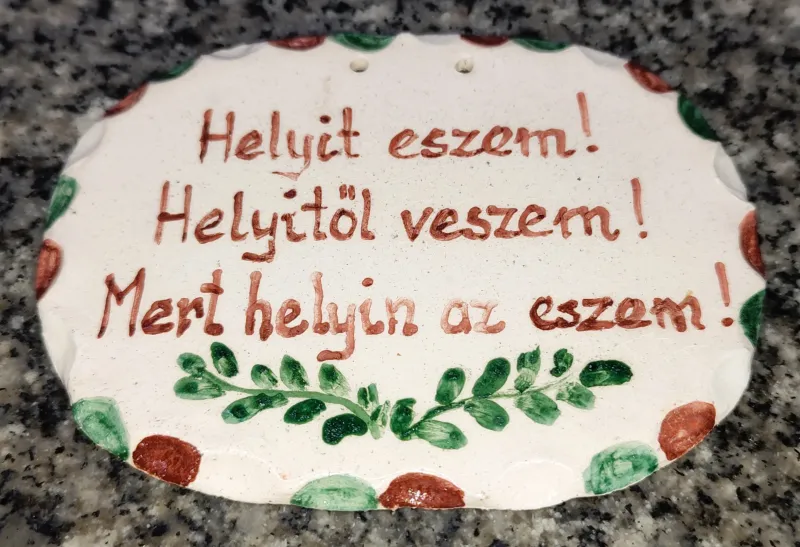 Helyit eszem!
Helyitől veszem!
Mert helyin az eszem!